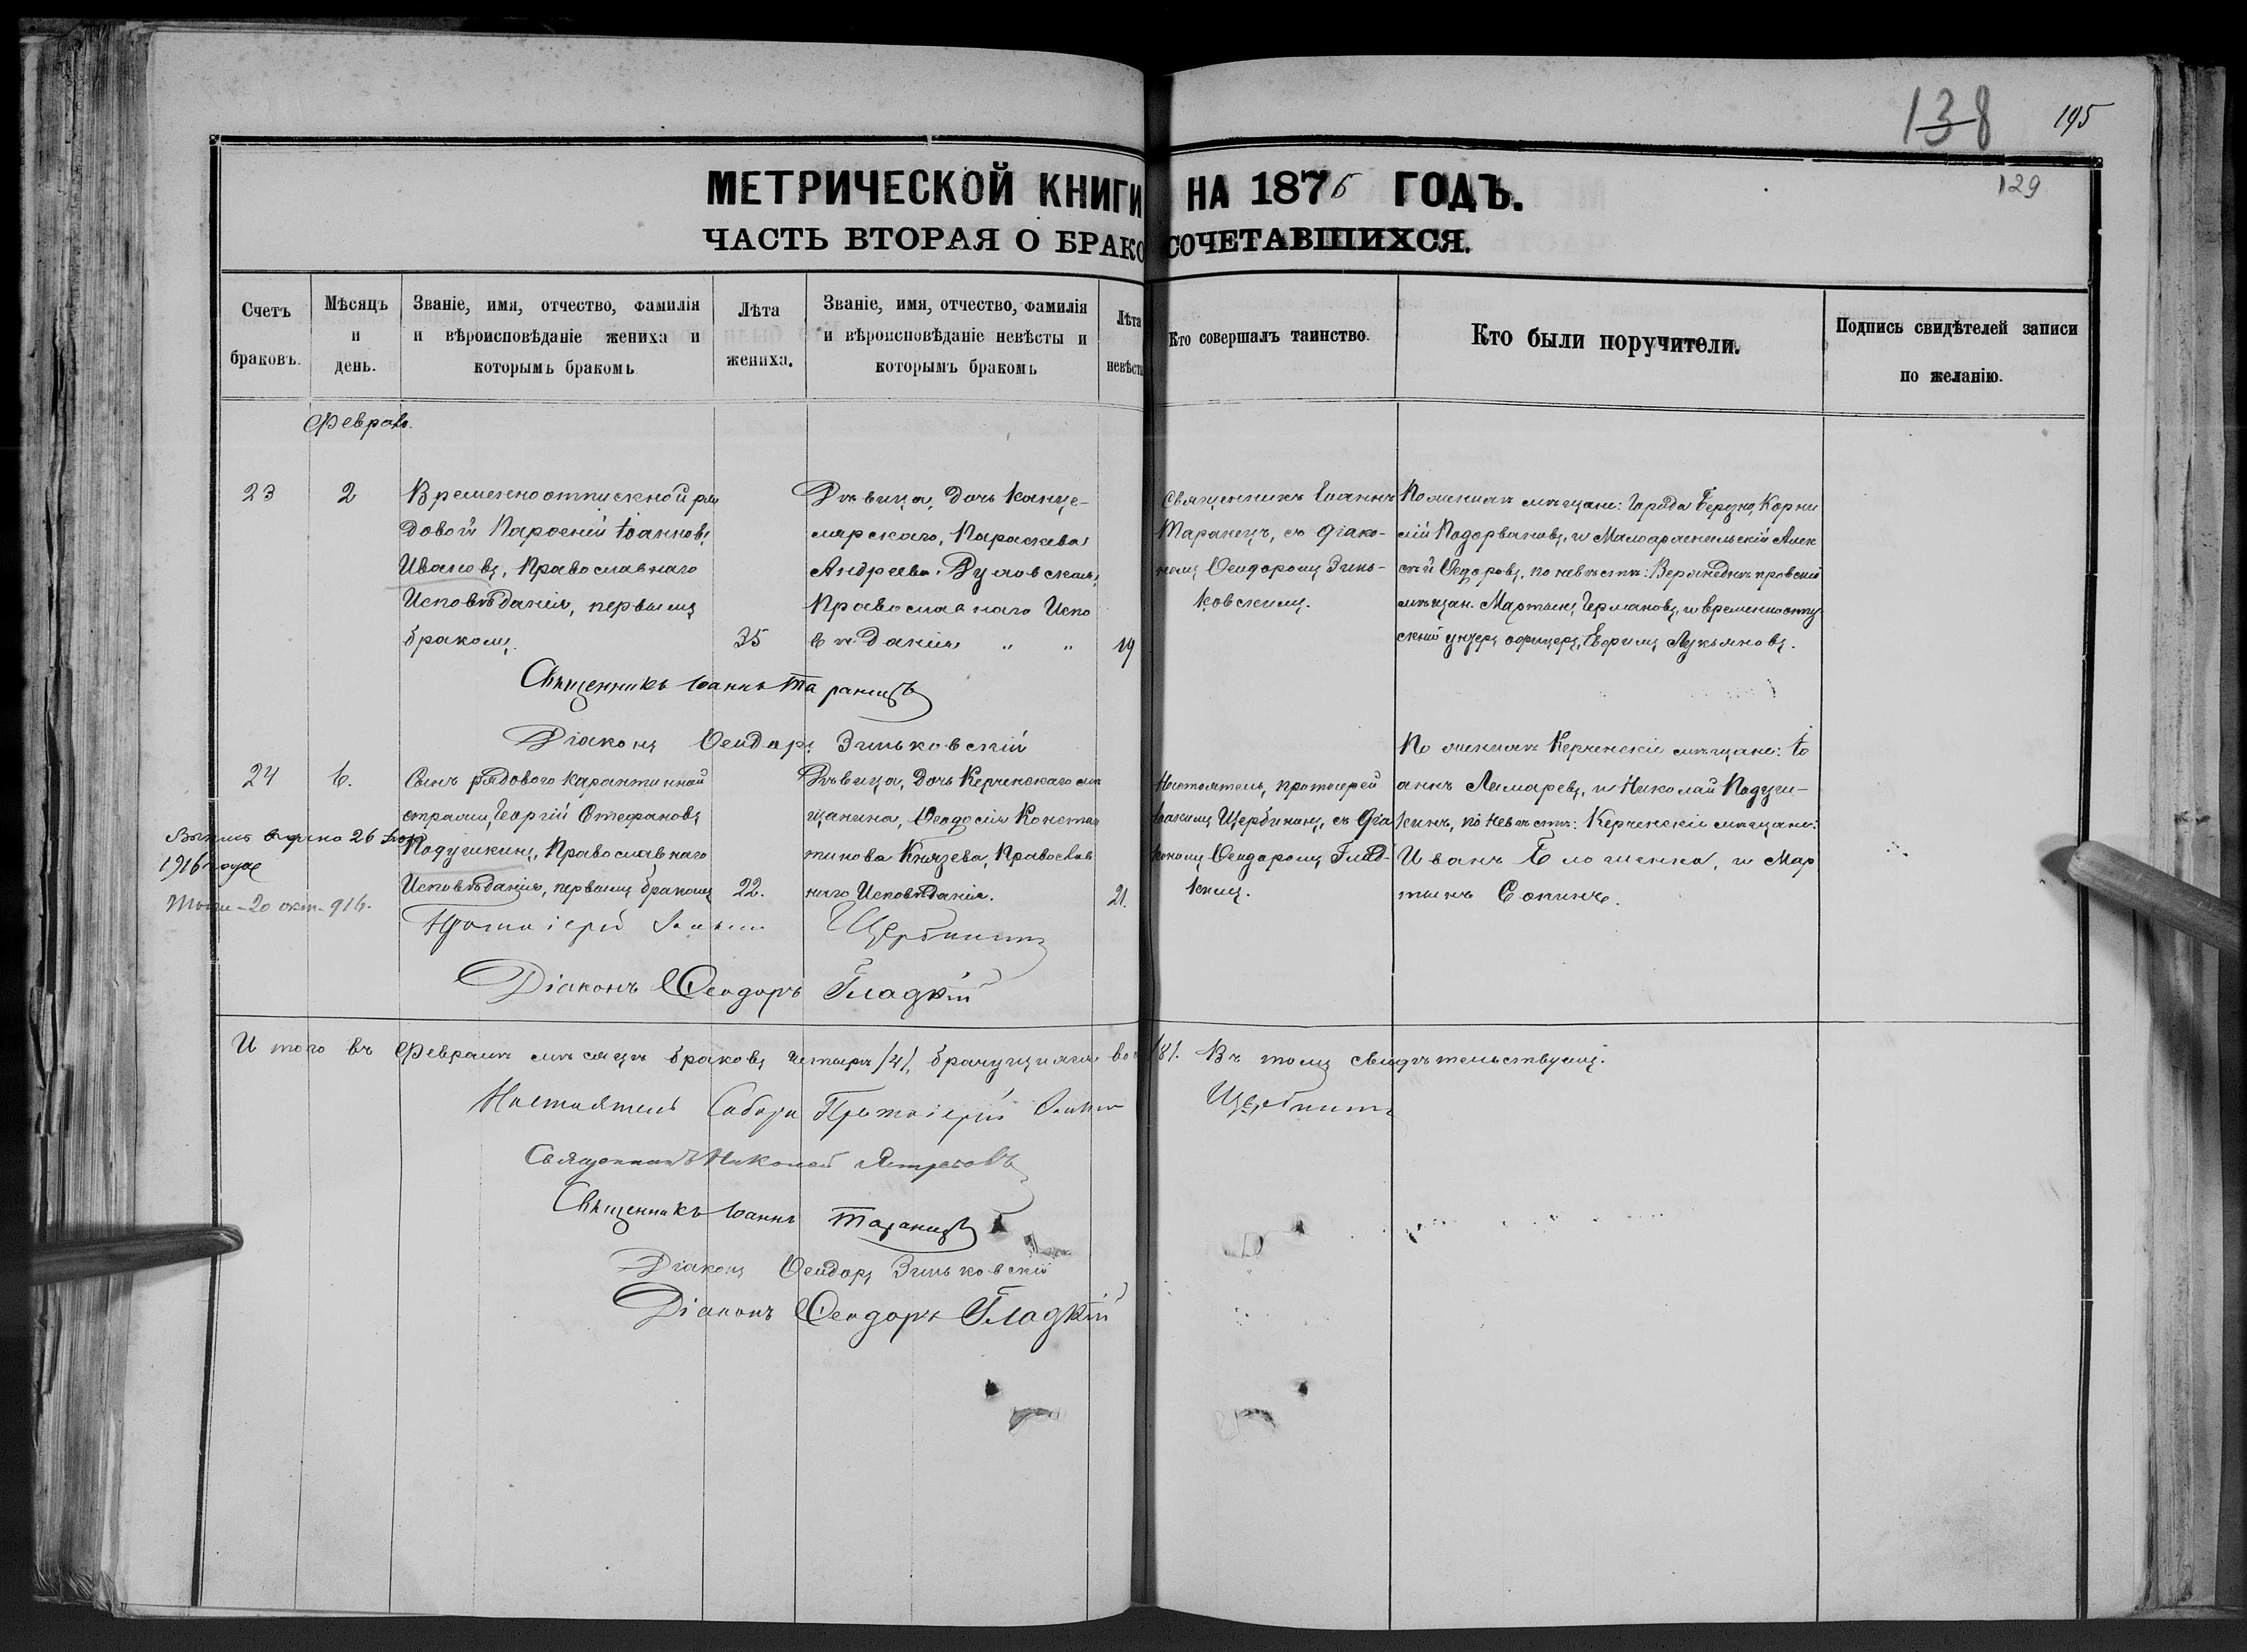 138
195
МЕТРИЧЕСКОЙ КНИГИ НА 1875 ГОДЪ.
129
ЧАСТЬ ВТОРАЯ О БРАКОСОЧЕТАВШИХСЯ.
Счетъ браковъ.
Мѣсяцъ и день.
Званіе, имя, отчество, фамилія
и вѣроисповѣданіе жениха и
которымъ бракомъ
Лѣта жениха.
Званіе, имя, отчество, фамилія
и вѣроисповѣданіе невѣсты и
которымъ бракомъ
Лѣта
Кто совершалъ таинство.
Кто были поручители.
Подпись свидѣтелей записи
по желанію.
Февраль.
23
2
Временноотпускной ря
довой Іоанновъ
Ивановъ, Православнаго
Исповѣданія, первымъ
бракомъ.
35
Дѣвица, дочь канце-
лярскаго, Параскева
Андреева
Православнаго Испо
вѣданія " "
19
Священникъ Іоаннъ
Таранецъ, съ діако-
номъ Ѳеодоромъ Зинь-
ковскимъ.
По женихѣ мѣщане: города Корни
лій и Алек
сѣй Ѳедоровъ, по невѣстѣ: Верхнеднѣпровскій
мѣщан. Мартынъ Германовъ, и временноотпу
скной унтеръ офицеръ, Ефримъ Лукьяновъ.
Священникъ Іоаннъ Таранецъ
Діаконъ Ѳеодоръ Зиньковскій
24
6.
Сынъ рядового карантинной
стражи, Георгій Стефановъ
Подушкинъ, Православнаго
Исповѣданія, первымъ бракомъ
22.
Дѣвица, дочь Керченскаго мѣ
щанина, Ѳеодосія Констан
тинова Князева, Православ
наго Исповѣданія.
21.
Настоятель, протоіерей
Іоакимъ Щербининъ, съ діа
кономъ Ѳеодоромъ Глад-
кимъ.
По женихѣ Керченскіе мѣщане: Іо
аннъ Лимаревъ, и Николай Подуш-
кинъ, по невѣстѣ: Керченскіе мѣщане:
Иванъ и Мар
тынъ Сопинъ.
26
1916 года
20 окт. 916.
Протоіерей Іоакимъ Щербининъ
Діаконъ Ѳеодоръ Гладкій
Итого въ Февралѣ мѣсяцѣ браковъ четыре /4/, /8/. Въ томъ свидѣтельствуемъ.
Настоятель Собора Протоіерей Іоакимъ Щербининъ
Священникъ Николай
Священникъ Іоаннъ Таранецъ
Діаконъ Ѳеодоръ Зиньковскій
Діаконъ Ѳеодоръ Гладкій